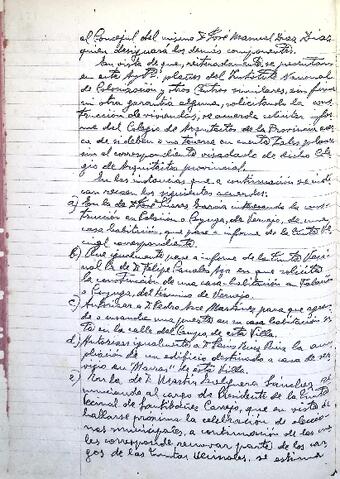 al Concejal del mismo D. José Manuel Diaz Diaz
quien designará los demás componentes.
En vista de que, reiteradamente, se presentan
en este Ayt.º planos del Instituto Nacional
de Colonización y otros Centros similares, sin firma
ni otra garantía alguna, solicitando la cons-
trucción de viviendas, se acuerda solicitar infor-
me del Colegio de Arquitectos de la Provincia acer-
ca de si deben o no tenerse en cuenta tales planos
sin el correspondiente visado de dicho Cole-
gio de Arquitectos provincial.
En las instancias que a continuación se indi-
can recaen los siguientes acuerdos:
a) En la de D. José interesando la cons-
trucción en de Vernejo, de una
casa habitación, que pase a informe de la Junta Ve-
cinal correspondiente.
b) Que igualmente pase a informe de la Junta Veci-
nal la de D. Felipe en que solicita
la construcción de una casa-habitación en
del término de Vernejo.
c) Autorizar a D. Pedro Martínez para que
una puerta en su casa habitación si-
ta en la calle del Campo, de esta Villa.
d) Autorizar igualmente a D. Luis Ruiz Ruiz la am-
pliación de un edificio destinado a casa de ser-
vicio en de esta Villa.
e) En la de D. Martín Sánchez, re-
nunciando al cargo de Presidente de la Junta
Vecinal de Santibáñez Carrejo, que en vista de
hallarse próxima la celebración de eleccio-
nes municipales, a continuación de las cua-
les corresponde renovar parte de los car-
gos de las Juntas Vecinales, se estima